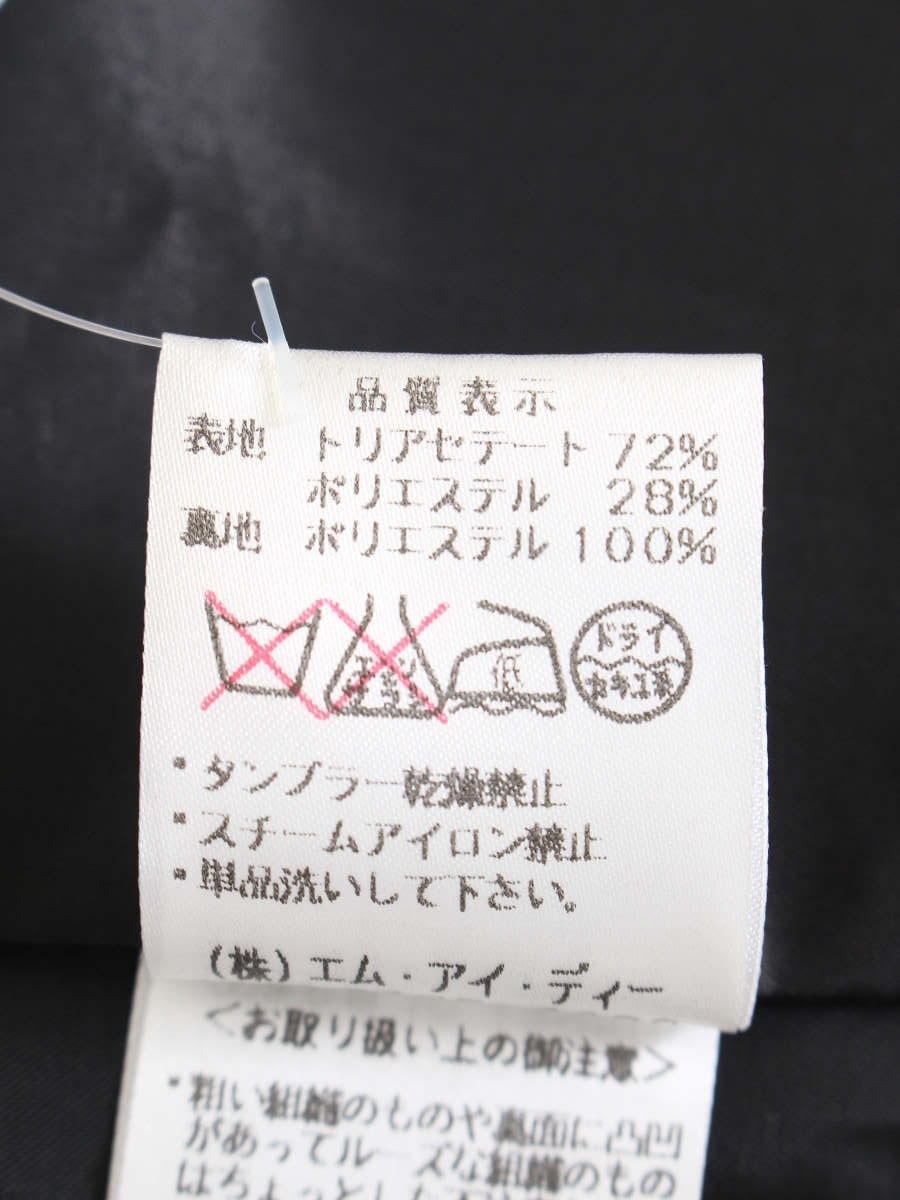 品質表示
表地 トリアセテート 72%
ポリエステル 28%
裏地 ポリエステル 100%
エンソ サラシ
低
ドライ
セキユ系
・タンブラー乾燥禁止
・スチームアイロン禁止
・単品洗いして下さい。
(株)エム・アイ・ディー
<お取り扱い上の御注意>
・粗い組織のものや裏面に凸凹
があってルーズな組織のもの
はちょっとした